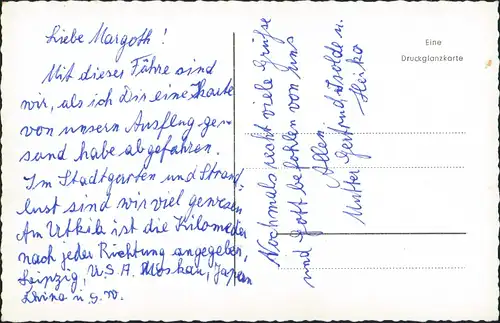 Liebe Margoth!
Mit dieser Fähre sind
wir, als ich Dir eine Karte
von unsern Ausflug ge-
sand habe abgefahren.
Im Stadtgarten und Strand
lust sind wir viel gewesen
Am Utkik ist die Kilometer
nach jeder Richtung angegeben,
Leipzig, U.S.A. Moskau, Japan
China u.s.w.
Nochmals recht viele Grüße
und Gott befohlen von uns
Allen
Mutter Gertrud Isolde u.
Heiko
Eine
Druckglanzkarte